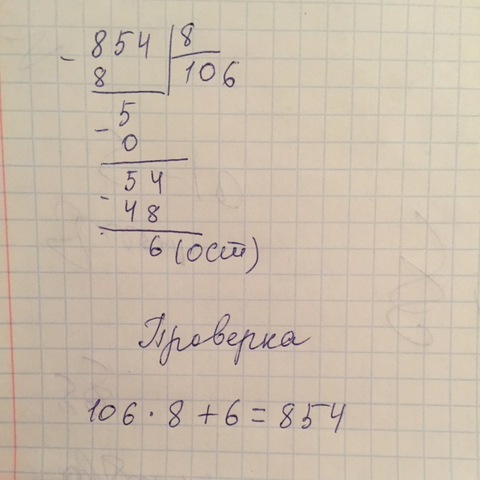 - 854 | 8
8 106
- 5
0
- 54
48
6 (ост)
Проверка
106 · 8 + 6 = 854